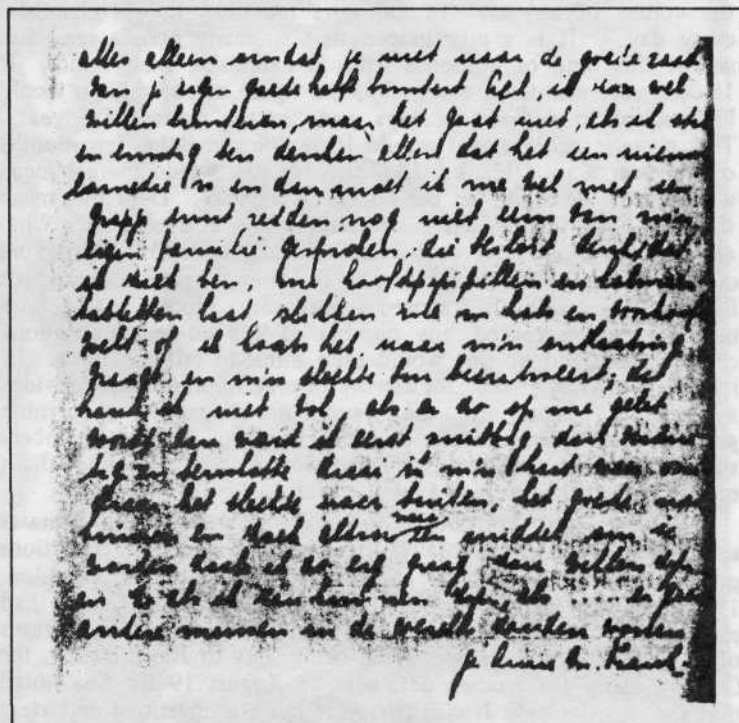 alles alleen omdat je niet naar de goede raad
van je eigen goede helft luistert. Ach, ik zou wel
willen luisteren, maar het gaat niet, als ik stil
en ernstig ben denken allen dat het een nieuwe
comedie is en dan moet ik me wel met een
grapje eruit redden, nog niet eens van m'n
eigen familie gesproken, die beslist denkt dat
ik ziek ben, me hoofdpijnpillen en kalmeer
tabletten laat slikken me in hals en voorhoofd
voelt of ik koorts heb, naar m'n ontlasting
vraagt en m'n slechte bui becritiseert, dat
houd ik niet vol, als er zo op me gelet
wordt dan word ik eerst snibbig, dan verdrie-
tig en tenslotte draai ik m'n hart weer om
draai het slechte naar buiten, het goede naar
binnen en zoek aldoor naar een middel om te
worden zoals ik zo erg graag zou willen zijn
en zoals ik zou kunnen zijn, als ..... er geen
andere mensen in de wereld zouden wonen
je Anne M. Frank.